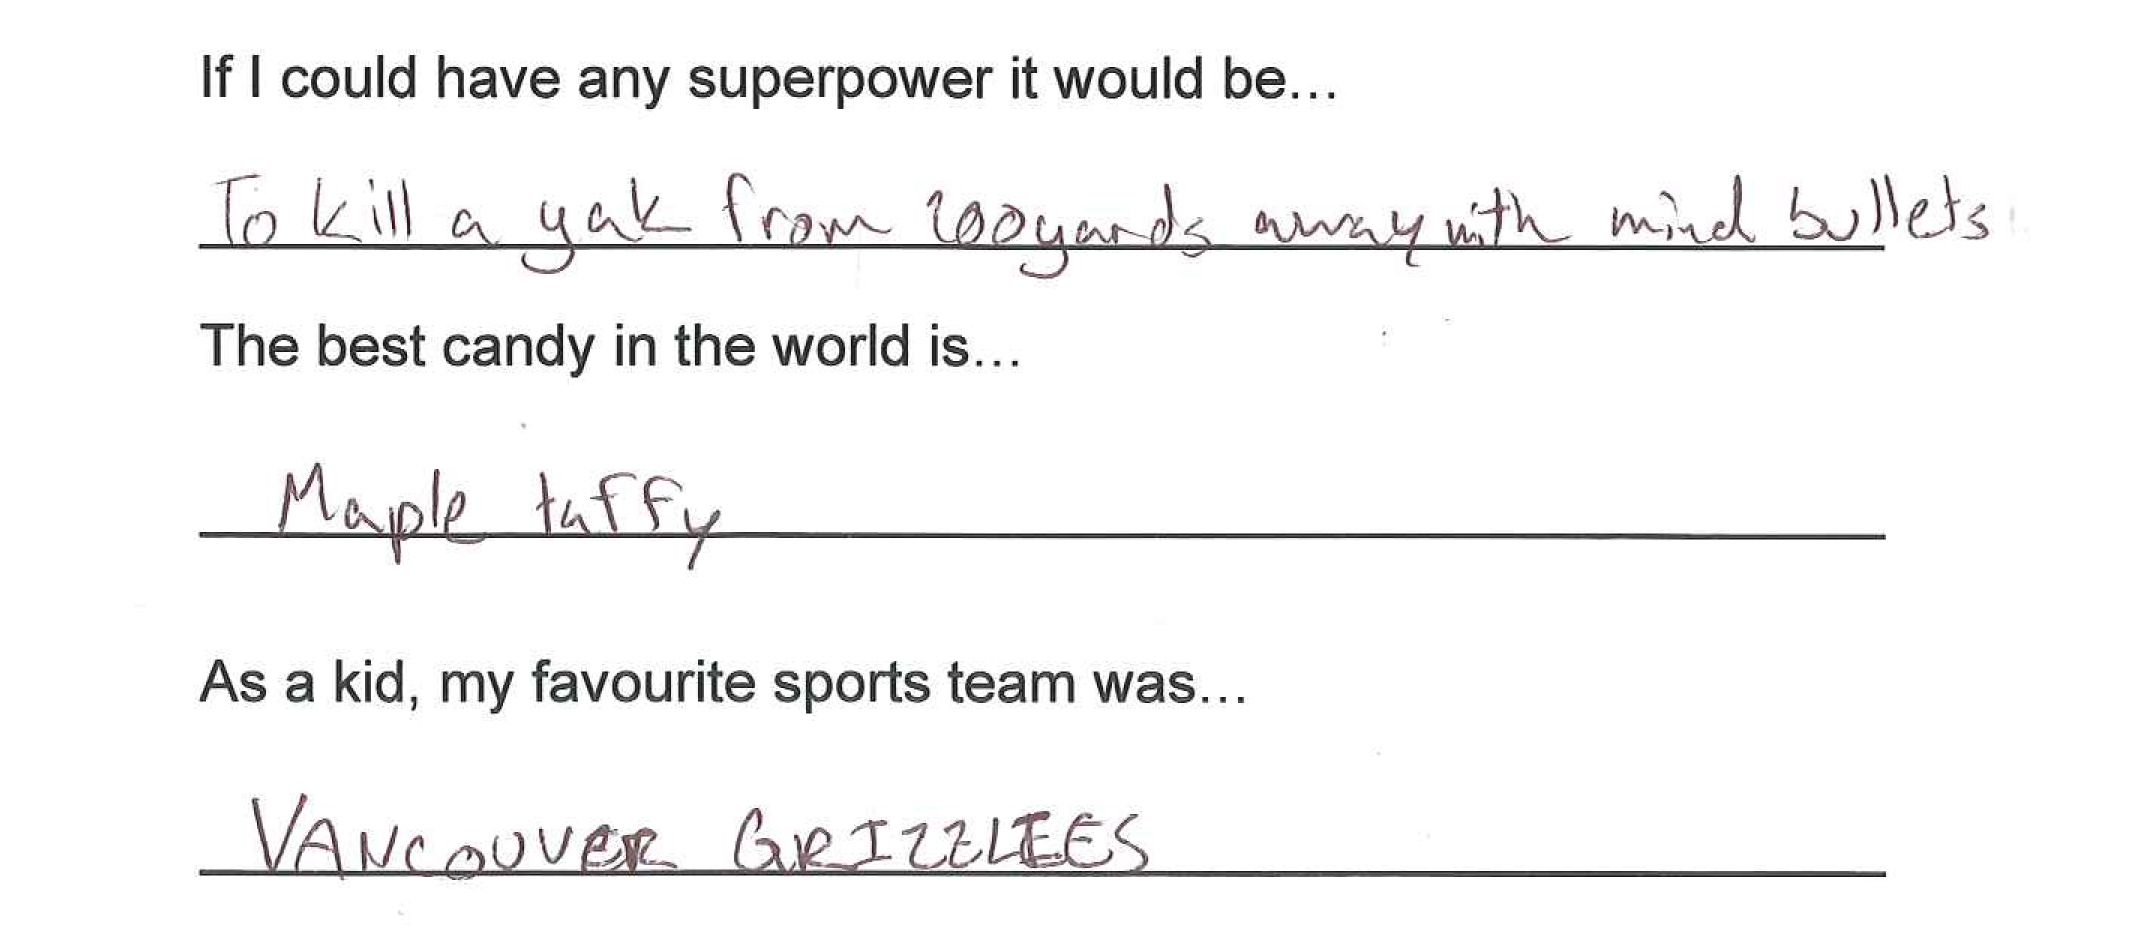 If I could have any superpower it would be...
To kill a yak from 200yards away with mind bullets
The best candy in the world is...
Maple taffy
As a kid, my favourite sports team was...
VANCOUVER GRIZZLIES